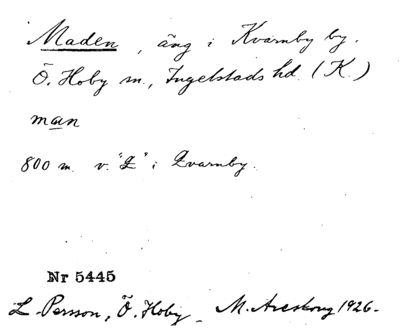 Maden, äng i Kvarnby by.
Ö. Hoby sn., Ingelstads hd. (K.)
man
800 m. v. "Q" i Qvarnby.
Nr 5445
L. Persson, Ö. Hoby M. Areskoug 1926.